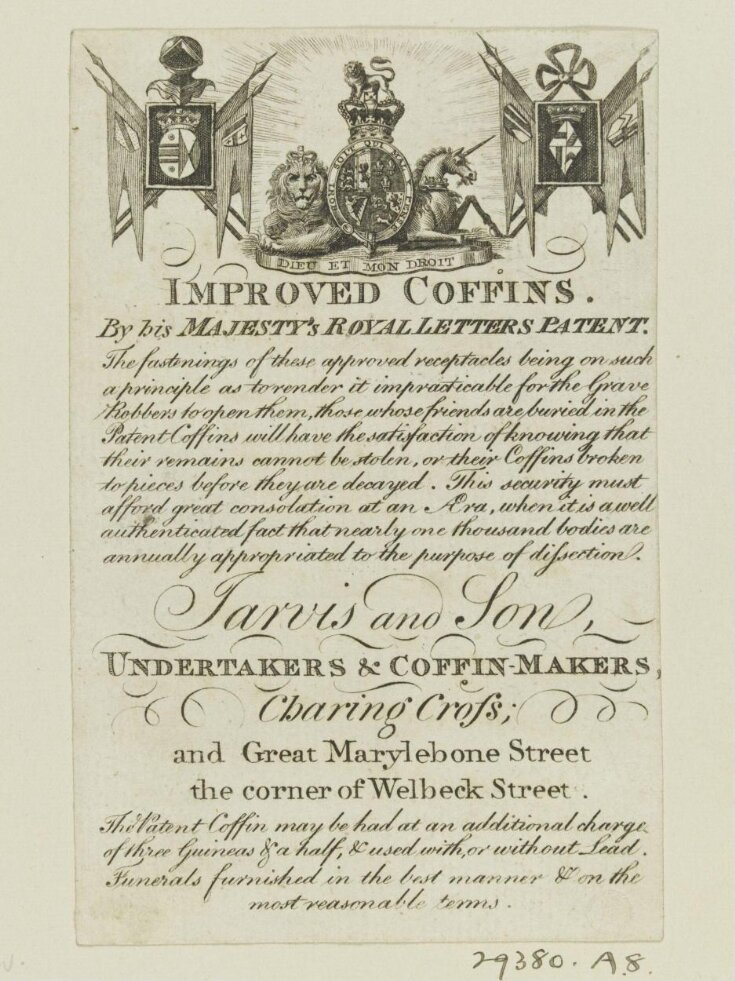 HONI SOIT QUI MAL Y PENSE
DIEU ET MON DROIT
IMPROVED COFFINS.
By his MAJESTY's ROYAL LETTERS PATENT.
The fastenings of these approved receptacles being on such
a principle as to render it impracticable for the Grave
Robbers to open them, those whose friends are buried in the
Patent Coffins will have the satisfaction of knowing that
their remains cannot be stolen, or their Coffins broken
to pieces before they are decayed. This security must
afford great consolation at an Æra, when it is a well
authenticated fact that nearly one thousand bodies are
annually appropriated to the purpose of diſsection.
Jarvis and Son,
UNDERTAKERS & COFFIN-MAKERS,
Charing Croſs;
and Great Marylebone Street
the corner of Welbeck Street.
The Patent Coffin may be had at an additional charge
of three Guineas & a half, & used with, or without Lead.
Funerals furnished in the best manner & on the
most reasonable terms.
29380. A 8.